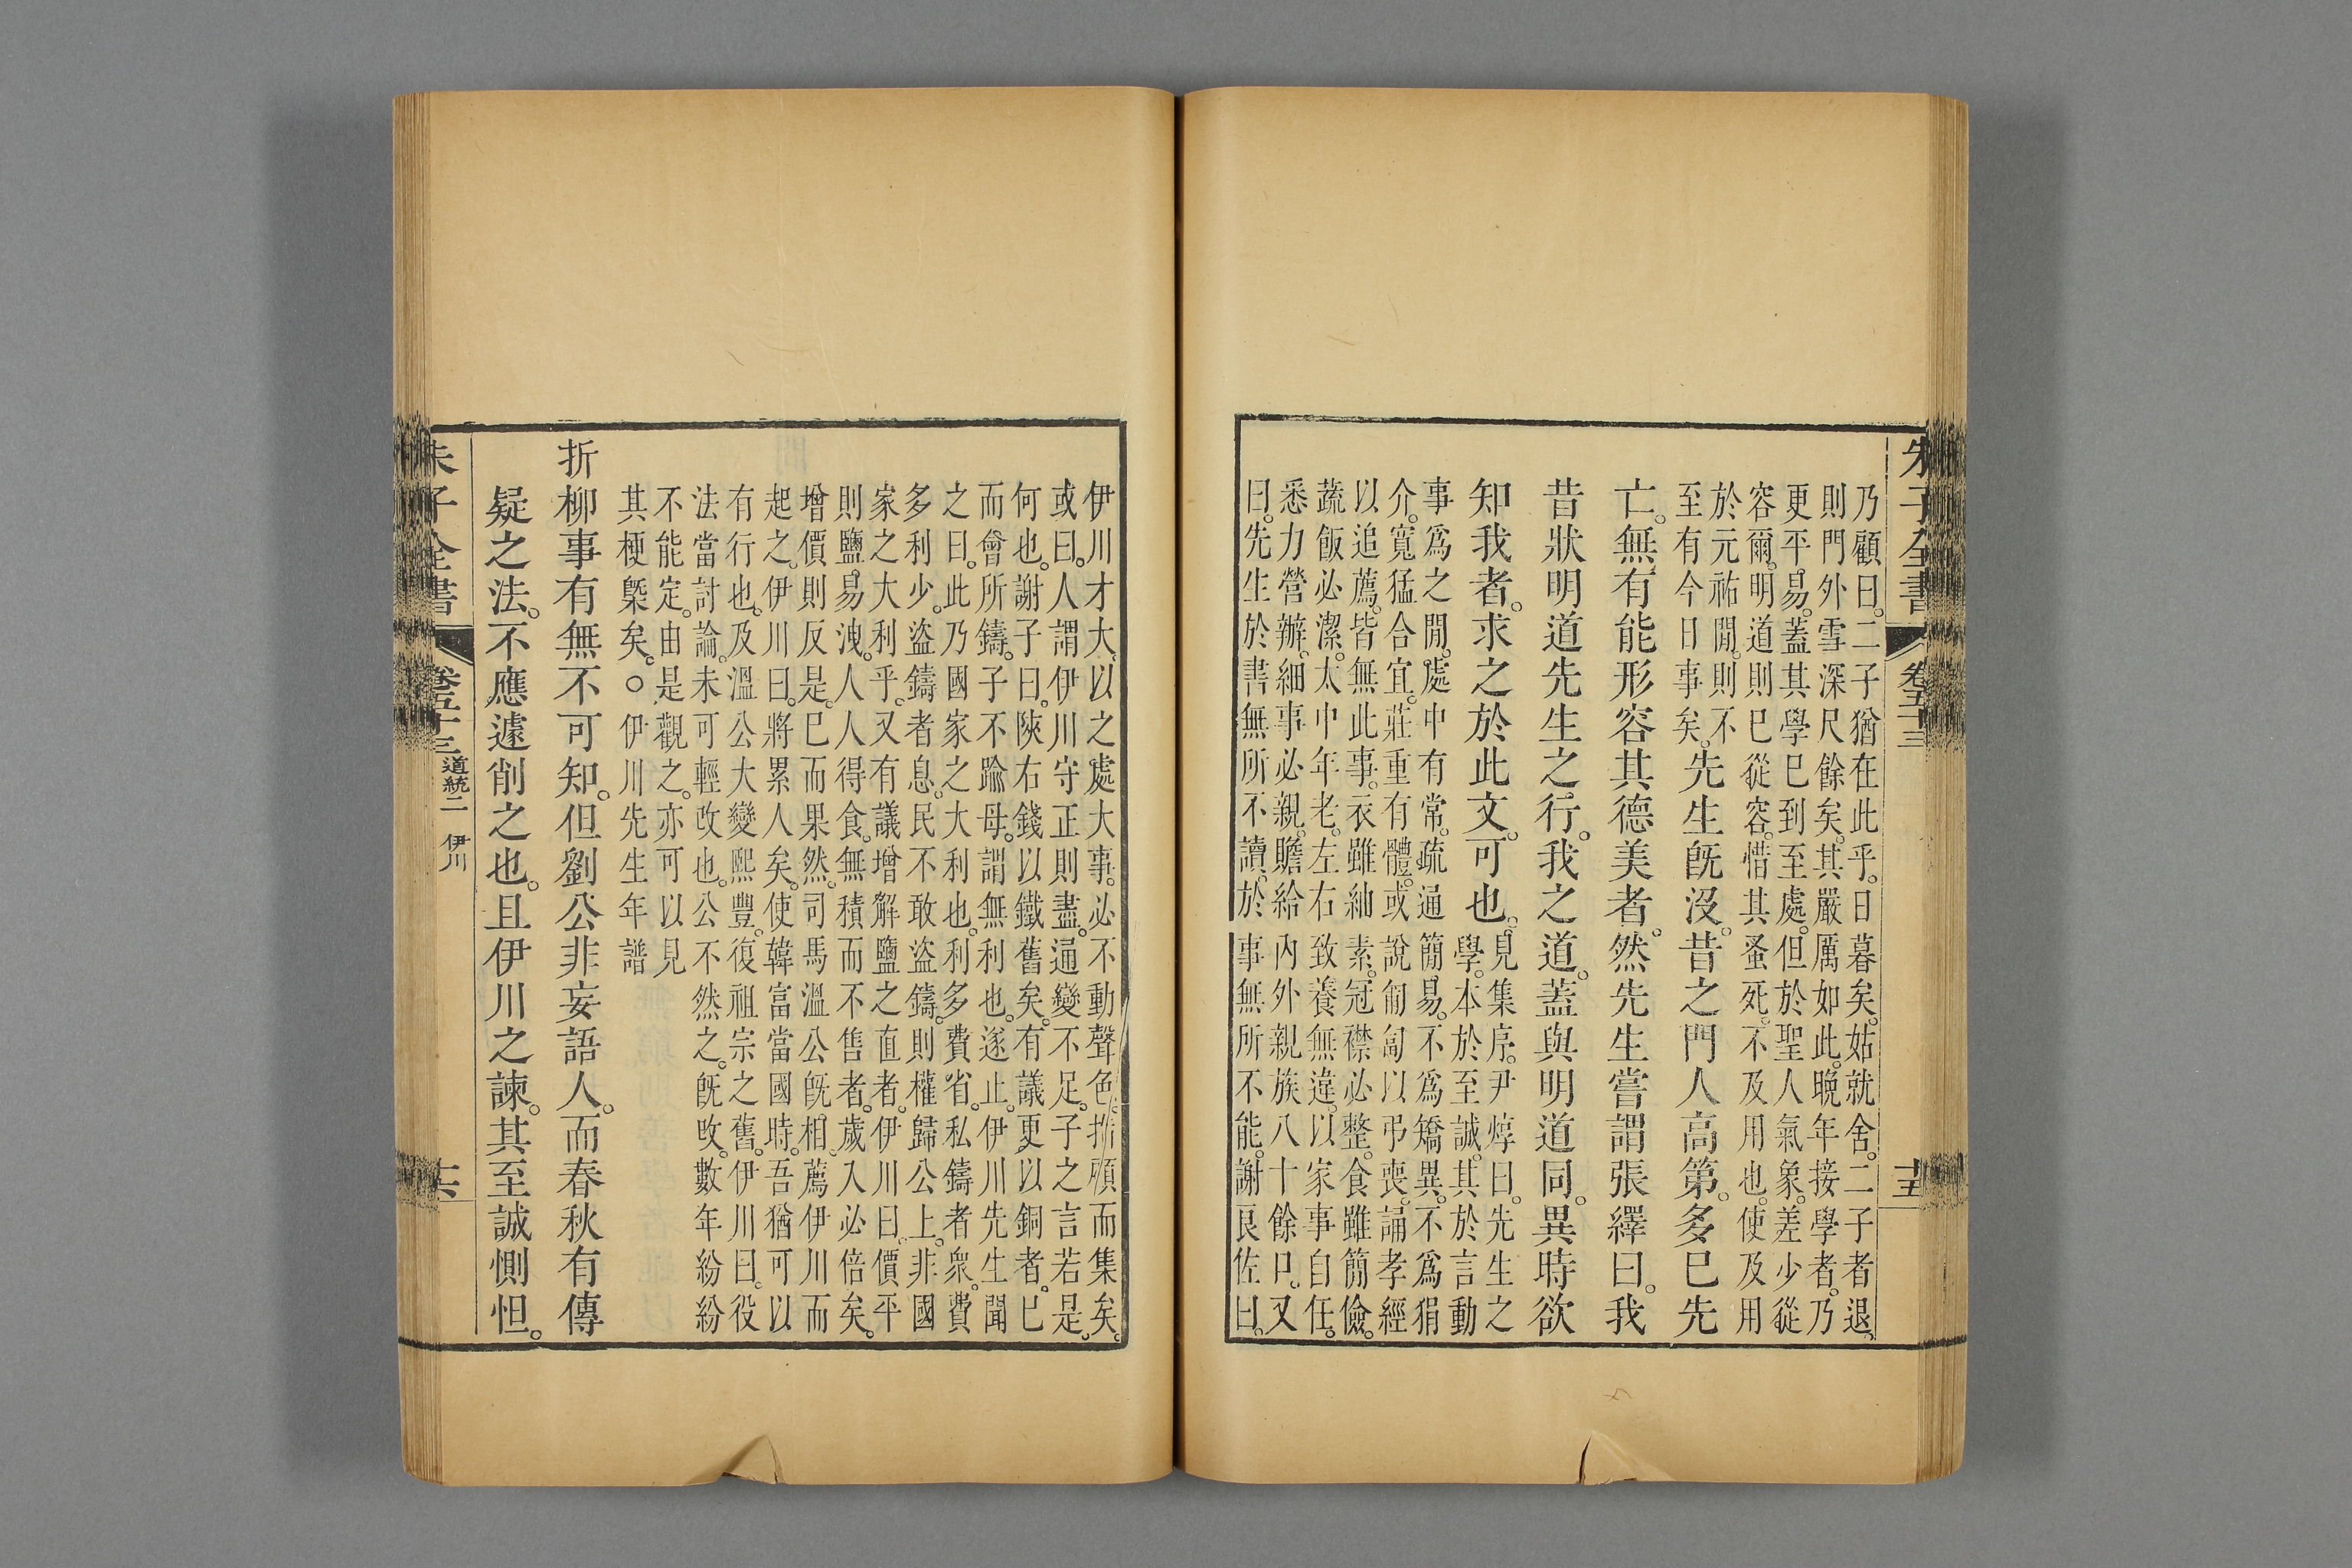 朱子全書 卷五十三 十五
乃顧曰。二子猶在此乎。日暮矣。姑就舍。二子者退。
則門外雪深尺餘矣。其嚴厲如此。晚年接學者。乃
更平易。蓋其學已到至處。但於聖人氣象。差少從
容爾。明道則已從容。惜其蚤死。不及用也。使及用
於元祐閒。則不
至有今日事矣。
先生旣沒。昔之門人高第。多已先
亡。無有能形容其德美者。然先生嘗謂張繹曰。我
昔狀明道先生之行。我之道。蓋與明道同。異時欲
知我者。求之於此文。可也。
見集序。尹焞曰。先生之
學。本於至誠。其於言動
事爲之閒。處中有常。疏通簡易。不爲矯異。不爲狷
介。寬猛合宜。莊重有體。或說匍匐以弔喪。誦孝經
以追薦。皆無此事。衣雖紬素。冠襟必整。食雖簡儉。
蔬飯必潔。太中年老。左右致養無違。以家事自任。
悉力營辦。細事必親。贍給內外親族八十餘口。又
曰。先生於書無所不讀。於事無所不能。謝良佐曰。
伊川才大。以之處大事。必不動聲色。指顧而集矣。
或曰。人謂伊川守正則盡。通變不足。子之言若是。
何也。謝子曰。陝右錢以鐵舊矣。有議更以銅者。已
而會所鑄。子不踰母。謂無利也。遂止。伊川先生聞
之曰。此乃國家之大利也。利多費省。私鑄者衆。費
多利少。盜鑄者息。民不敢盜鑄。則權歸公上。非國
家之大利乎。又有議增解鹽之直者。伊川曰。價平
則鹽易洩。人人得食。無積而不售者。歲入必倍矣。
增價則反是。已而果然。司馬溫公旣相。薦伊川而
起之。伊川曰。將累人矣。使韓富當國時。吾猶可以
有行也。及溫公大變熙豐。復祖宗之舊。伊川曰。役
法當討論。未可輕改也。公不然之。旣改。數年紛紛
不能定。由是觀之。亦可以見
其梗槩矣。○伊川先生年譜
折柳事有無不可知。但劉公非妄語人。而春秋有傳
疑之法。不應遽削之也。且伊川之諫。其至誠惻怛。
朱子全書 卷五十三 道統二 伊川 十六